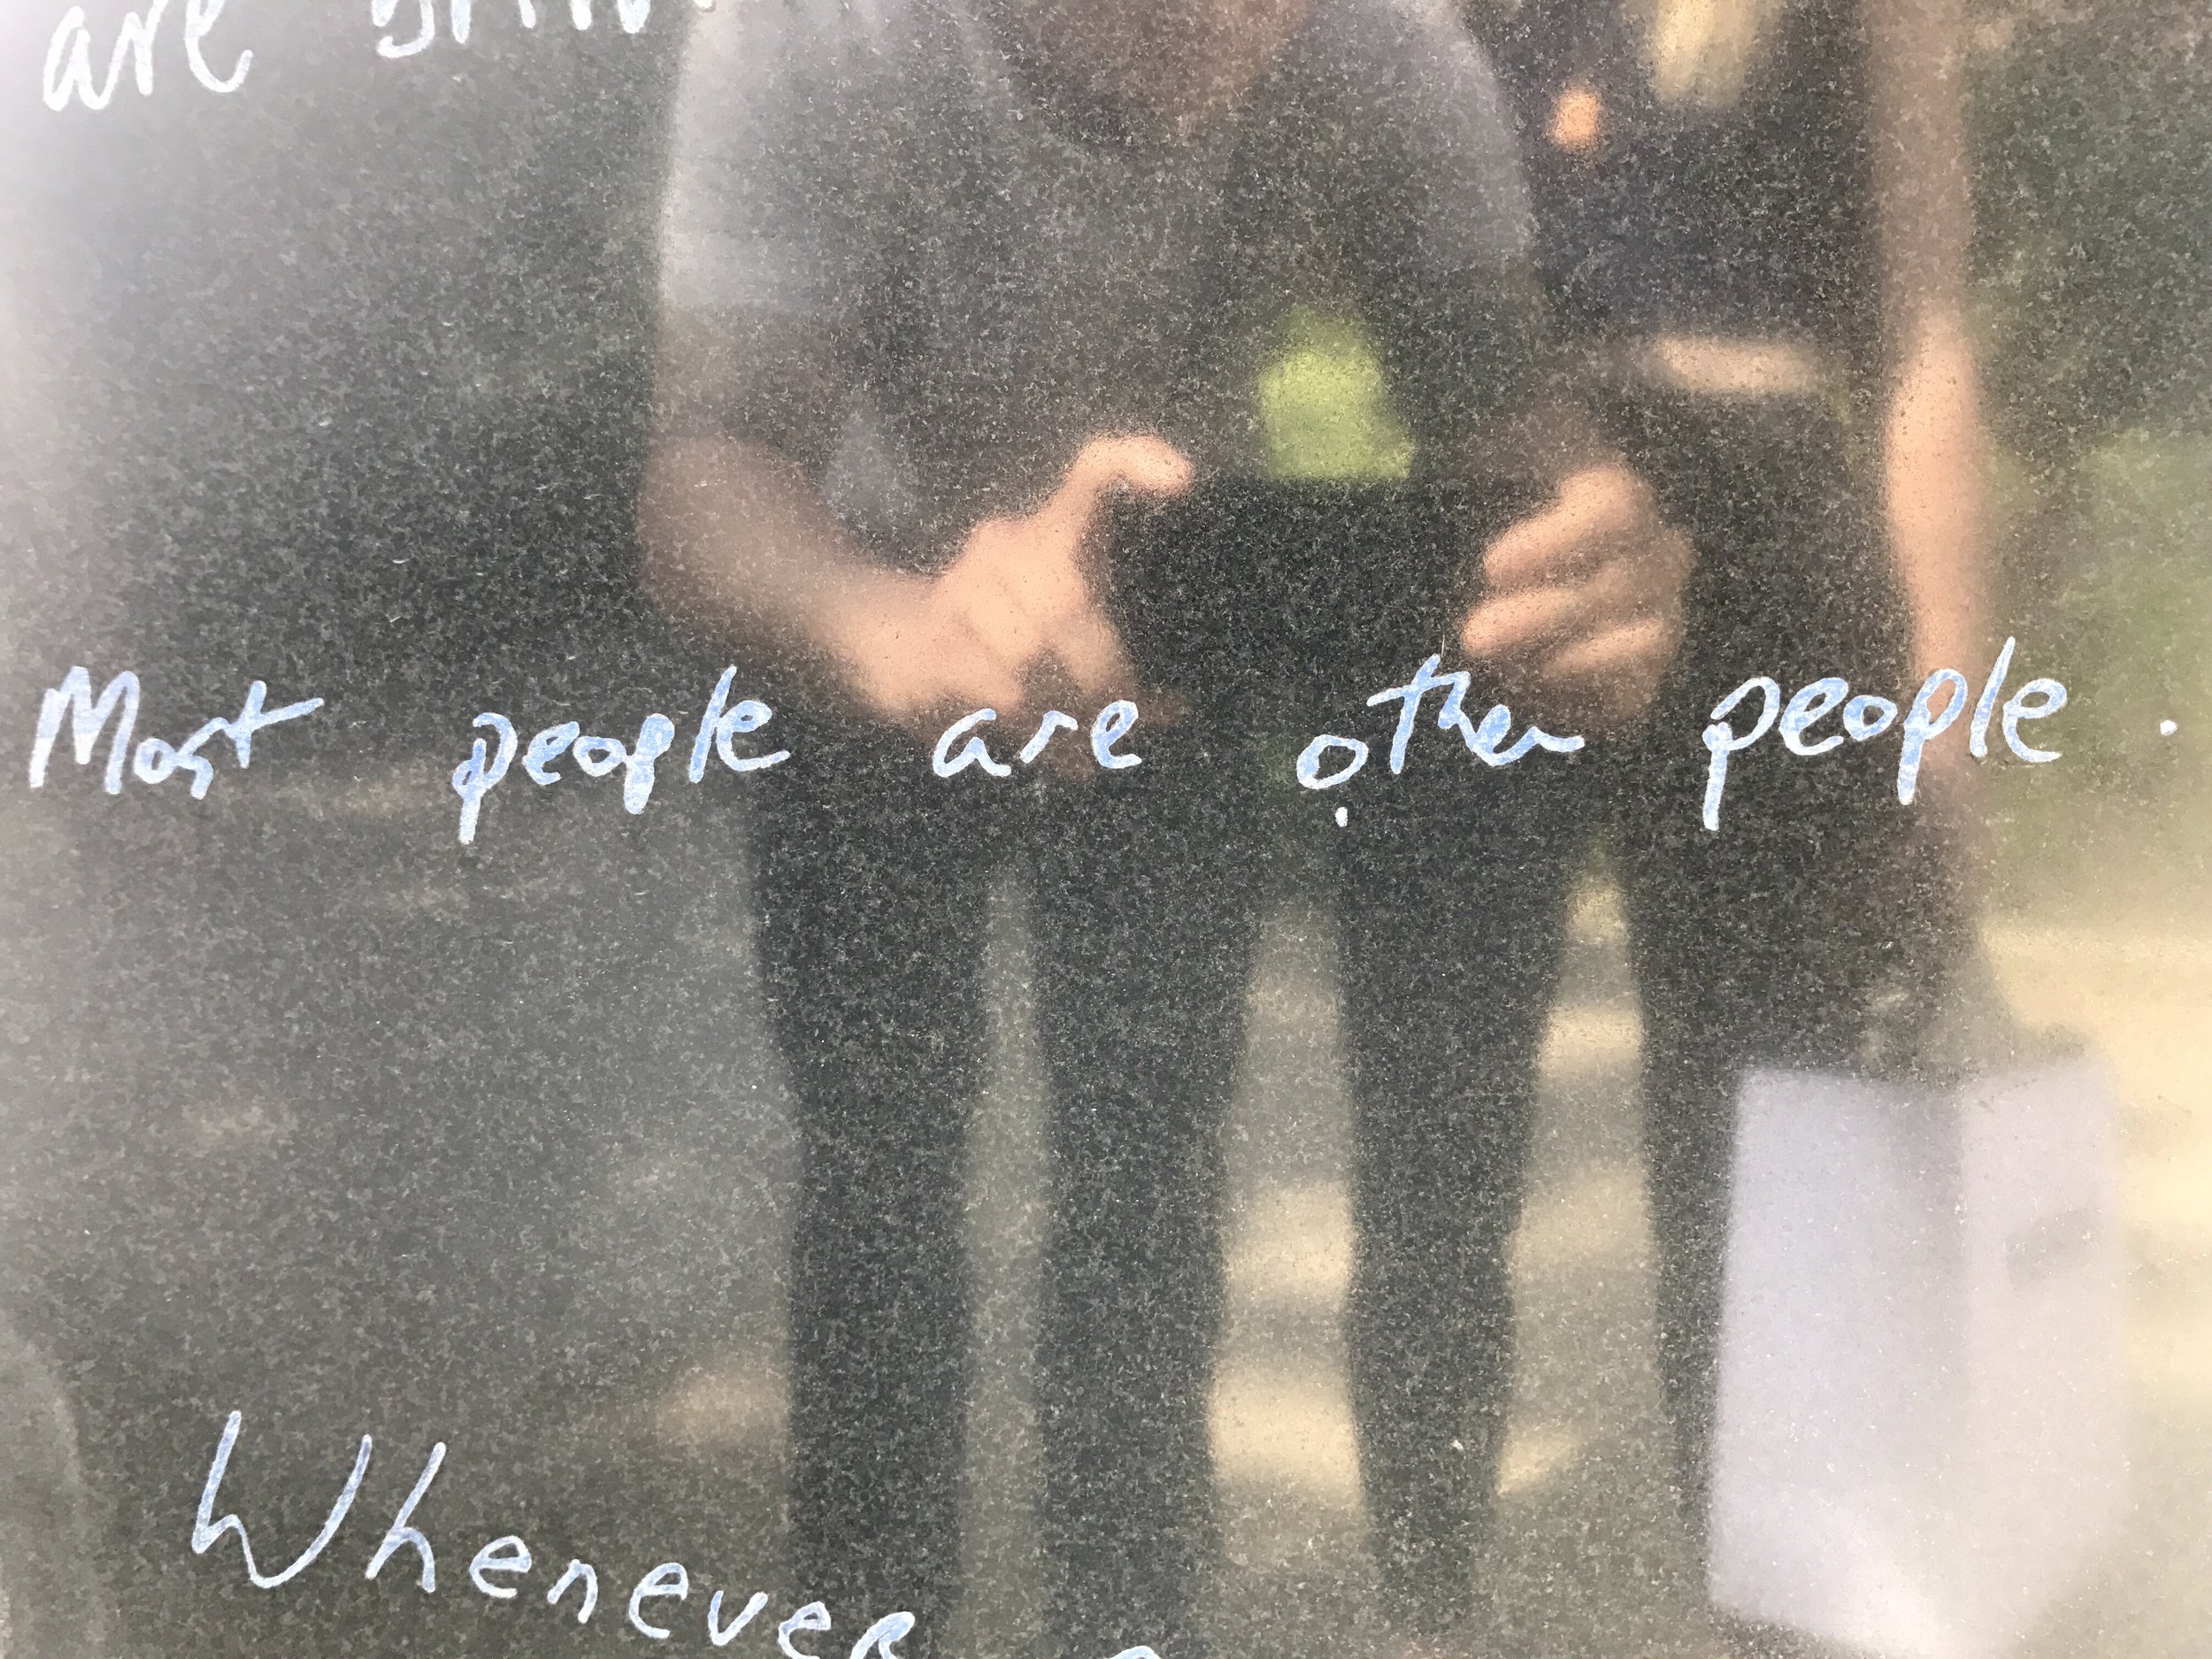 are
Most people are other people.
Whenever